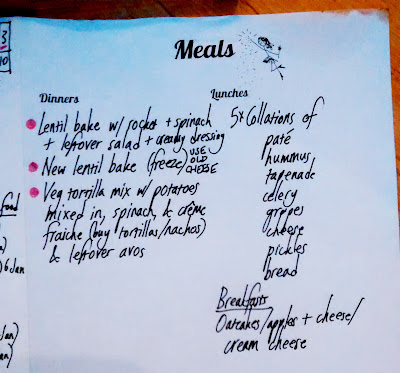 3
10
Meals
Dinners
Lentil bake w/ rocket + spinach
+ leftover salad + creamy dressing
New lentil bake (freeze) USE
OLD
CHEESE
Veg tortilla mix w/ potatoes
mixed in, spinach, & crème
fraiche (buy tortillas/nachos)
& leftover avos
Lunches
5x Collations of
paté
hummus
tapenade
celery
grapes
cheese
pickles
bread
Breakfasts
Oatcakes/apples + cheese/
cream cheese
food
6 Jan
Jan)
an)